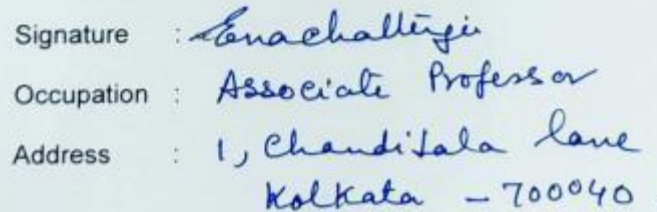 Signature : Enachatterjee
Occupation : Associate Professor
Address : 1, Chanditala lane
Kolkata - 700040